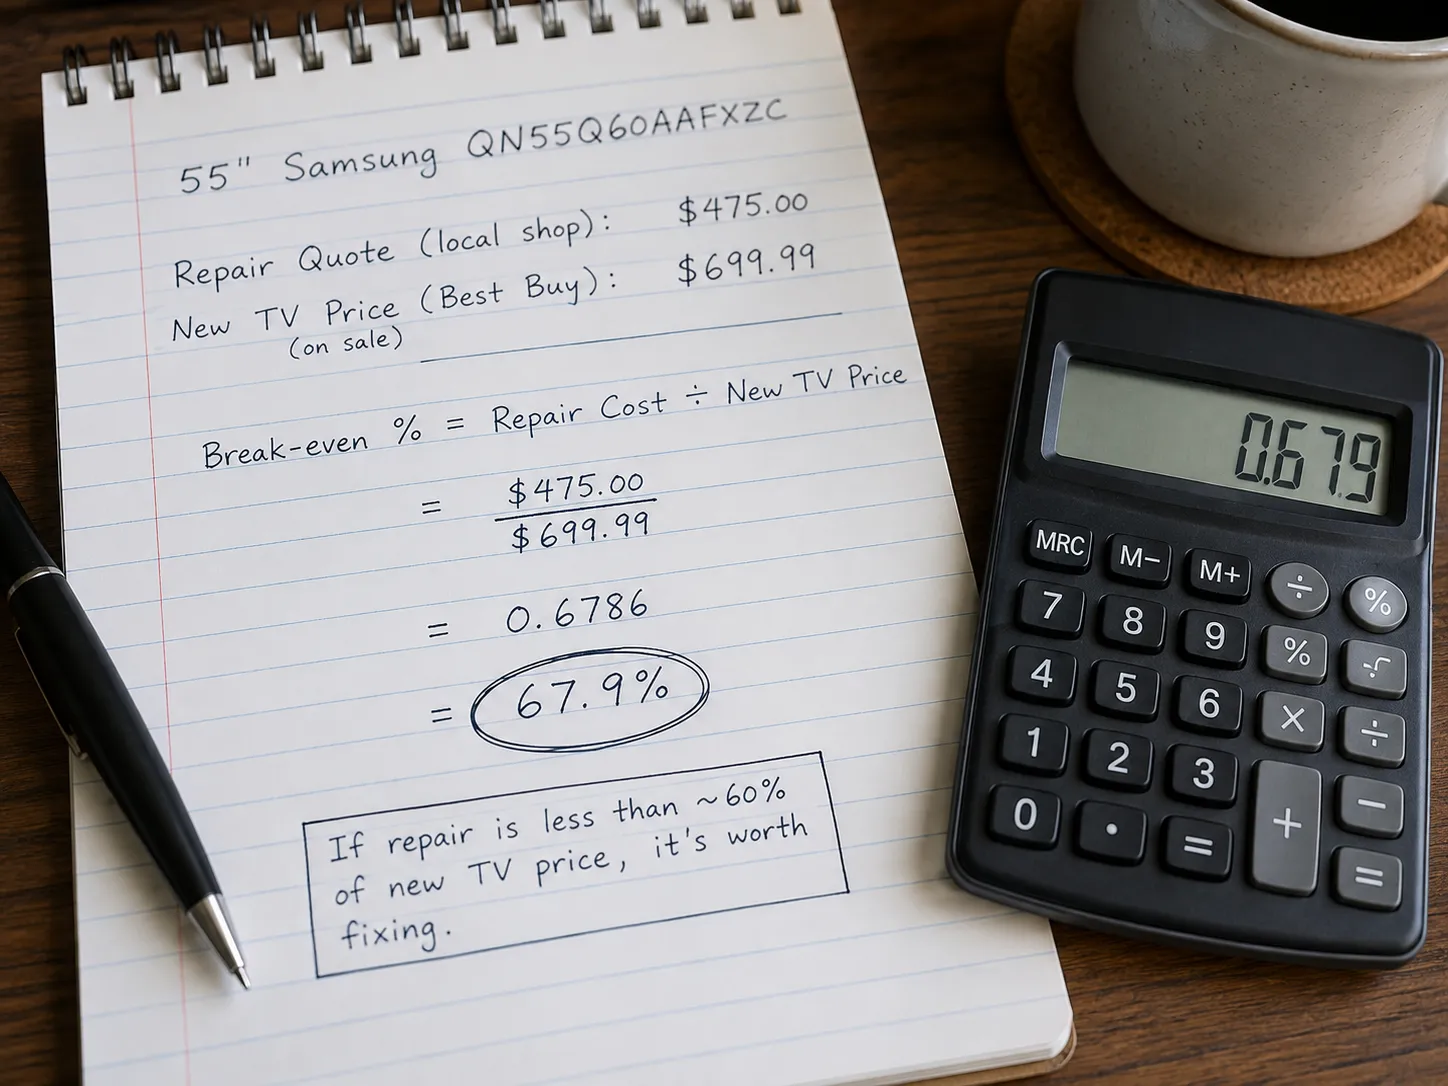 55" Samsung QN55Q60AAFXZC
Repair Quote (local shop): $475.00
New TV Price (Best Buy): $699.99
(on sale)
Break-even % = Repair Cost ÷ New TV Price
= $475.00
$699.99
= 0.6786
= 67.9%
If repair is less than ~60%
of new TV price, it's worth
fixing.
0.679
MRC M− M+ ÷ %
7 8 9 % √
4 5 6 × ÷
1 2 3 + −
0 . = =